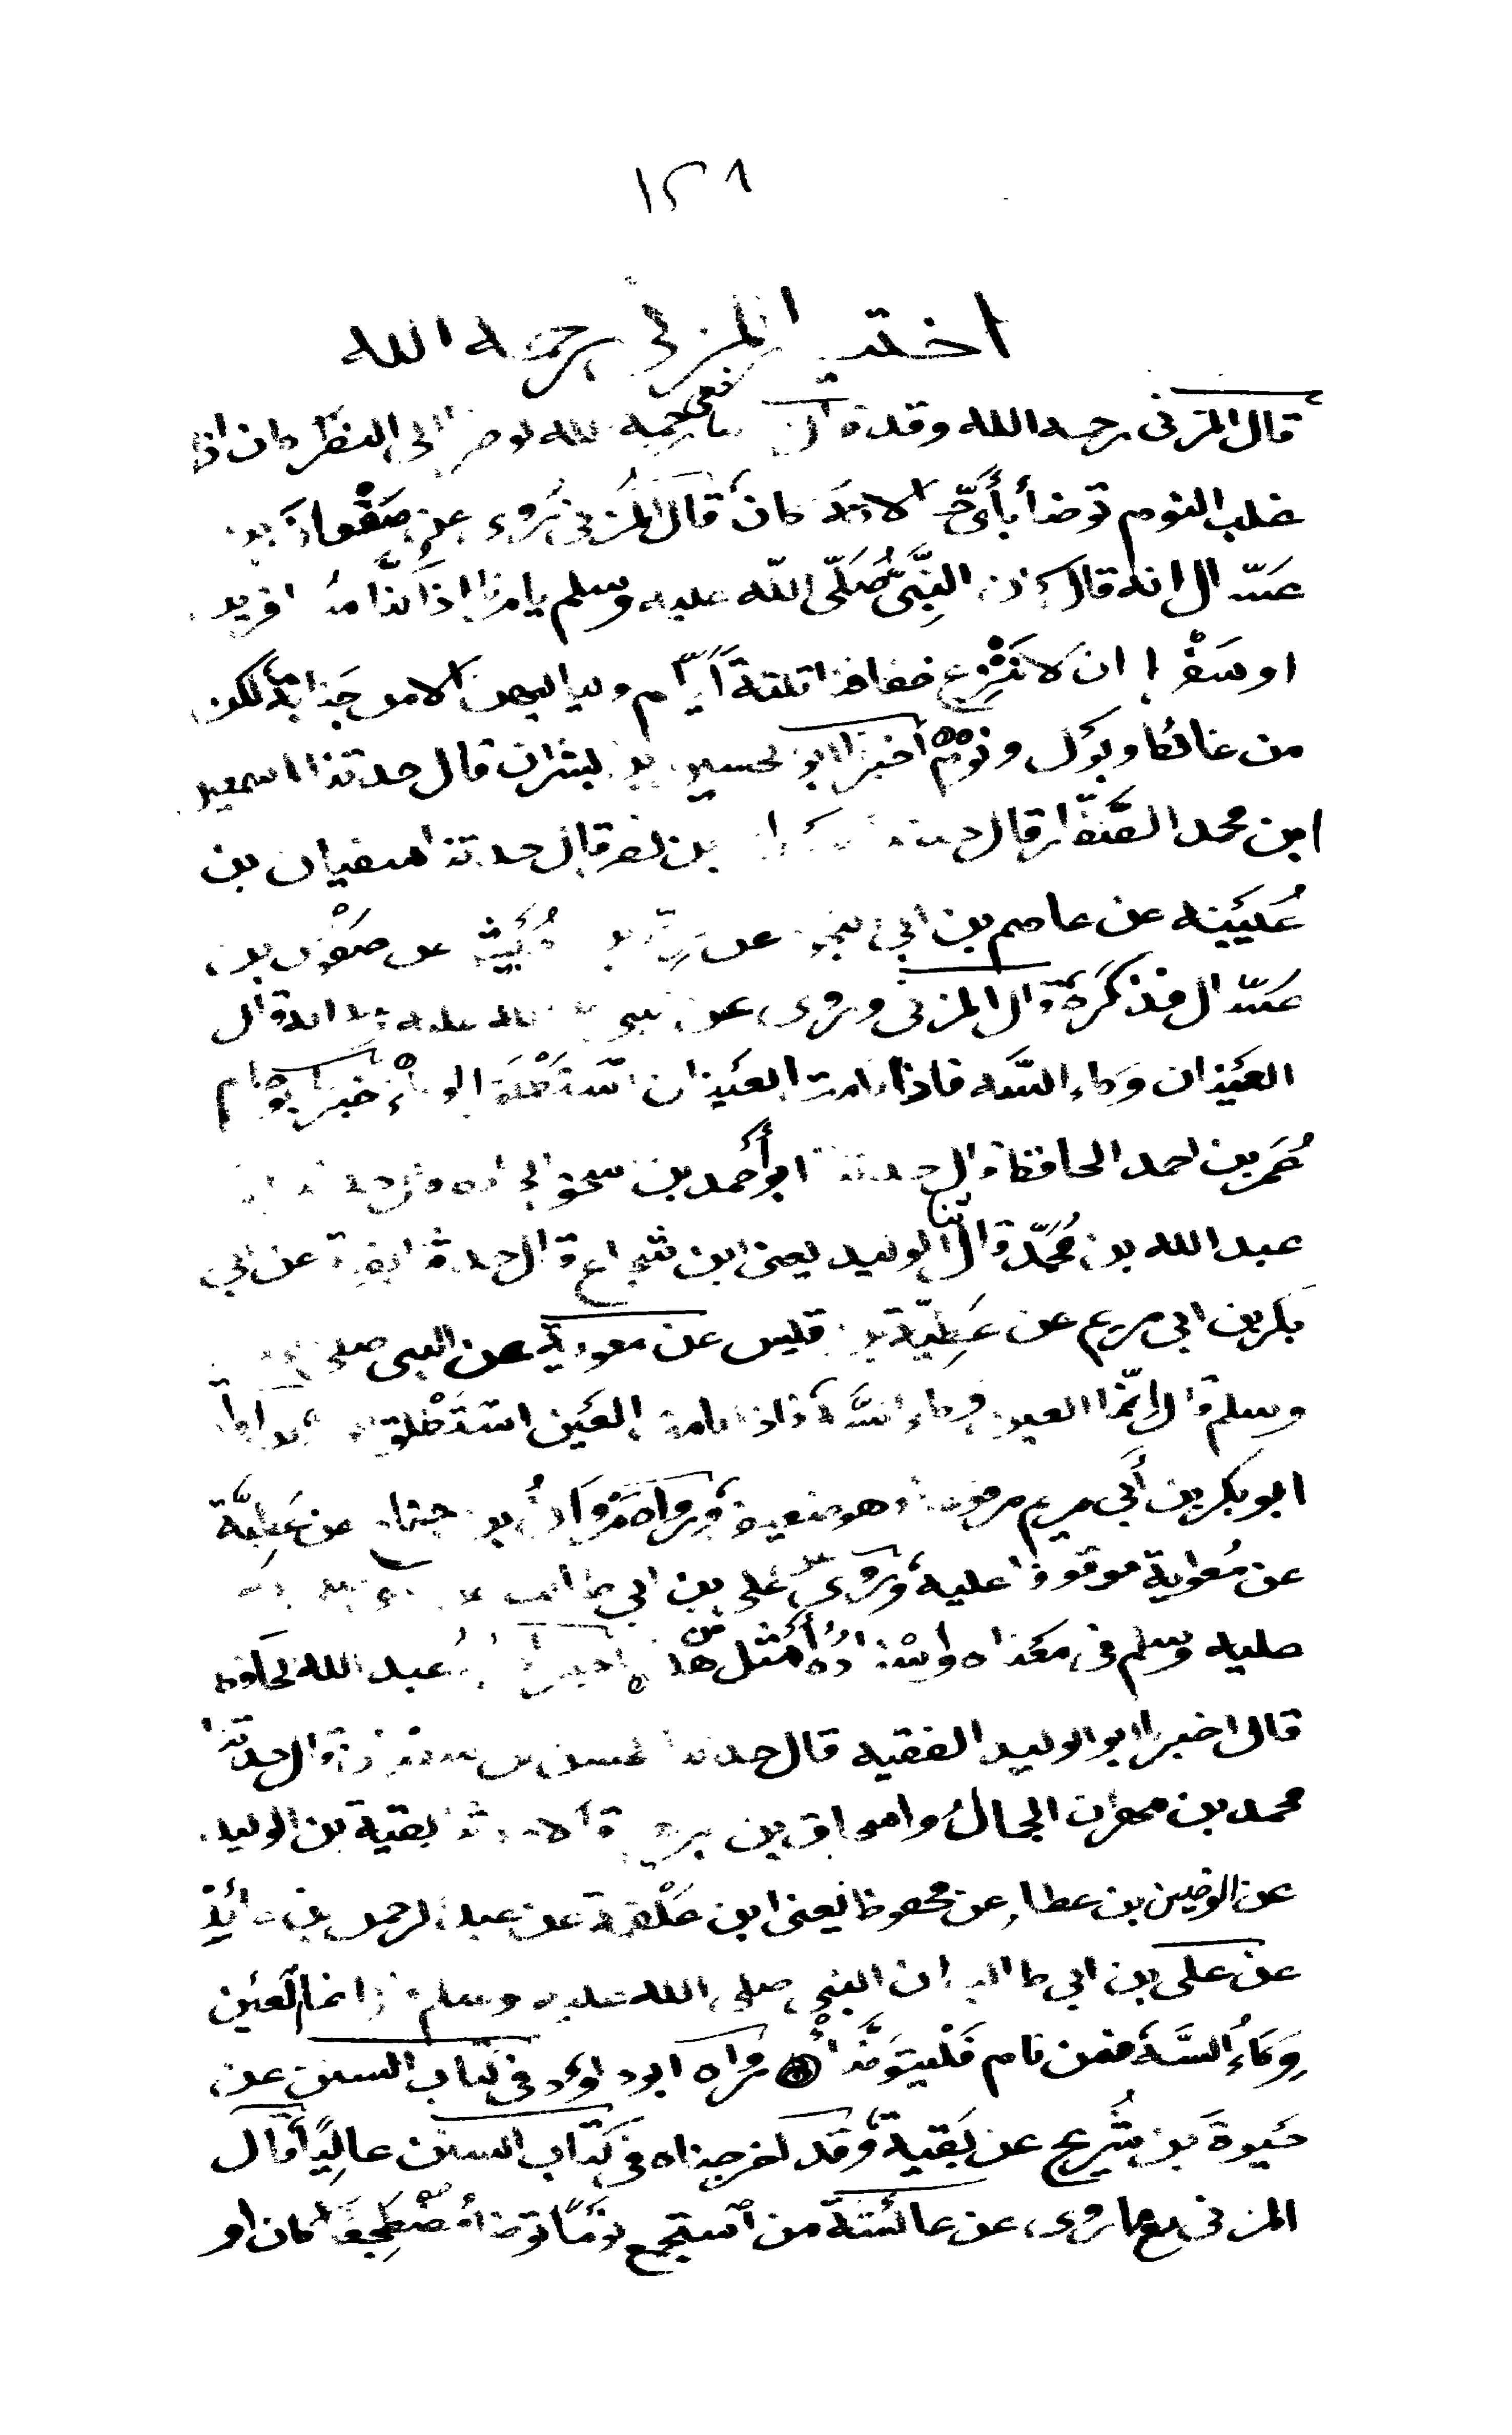 ١٢٨
اختيار المزني رحمه الله
قال المزني رحمه الله وقد قال الشافعي رحمه الله لو صرنا الى النظر كان اذا
غلب النوم توضأ بأي حالاته كان قال المزني روي عن صفوان بن
عسال انه قال كان النبي صلى الله عليه وسلم يامرنا اذا كنا مسافرين
او سفرا ان لا ننزع خفافنا ثلثة أيام ولياليهن الا من جنابة لكن
من غائط وبول ونوم أخبرنا ابو الحسين بن بشران قال حدثنا اسمعيل
ابن محمد الصفار قال حدثنا بن نصر قال حدثنا سفيان بن
عيينه عن عاصم بن ابي النجود عن زر بن حبيش عن صفوان بن
عسال فذكره قال المزني وروى عن النبي صلى الله عليه وسلم انه قال
العينان وكاء السه فاذا نامت العينان استطلق الوكاء أخبرنا
عمر بن احمد الحافظ قال حدثنا ابو أحمد بن
عبد الله بن محمد قال ثنا الوليد يعني ابن شجاع قال حدثنا بقية عن ابي
بكر بن ابي مريم عن عطية بن قيس عن معوية عن النبي صلى الله عليه
وسلم قال انما العين وكاء السه فاذا نامت العين استطلق الوكاء
ابو بكر بن أبي مريم مرفوعا وهو ضعيف ورواه مروان بن جناح عن عطية
عن معوية موقوفا عليه وروي عن علي بن ابي طالب عن النبي صلى الله
عليه وسلم في معناه واسناده أمثل من هذا اخبرنا ابو عبد الله الحافظ
قال اخبرنا ابو الوليد الفقيه قال حدثنا الحسن بن سفيان قال حدثنا
محمد بن مهران الجمال واسحاق بن قالا حدثنا بقية بن الوليد
عن الوضين بن عطاء عن محفوظ يعني ابن علقمة عن عبد الرحمن بن عائذ
عن علي بن ابي طالب ان النبي صلى الله عليه وسلم قال انما العين
وكاء السه فمن نام فليتوضأ رواه ابو داود في كتاب السنن عن
حيوة بن شريح عن بقية وقد اخرجناه في كتاب السنن عاليا قال
المزني مع ما روى عن عائشة من استجمع نوما توضأ مضطجعا كان او